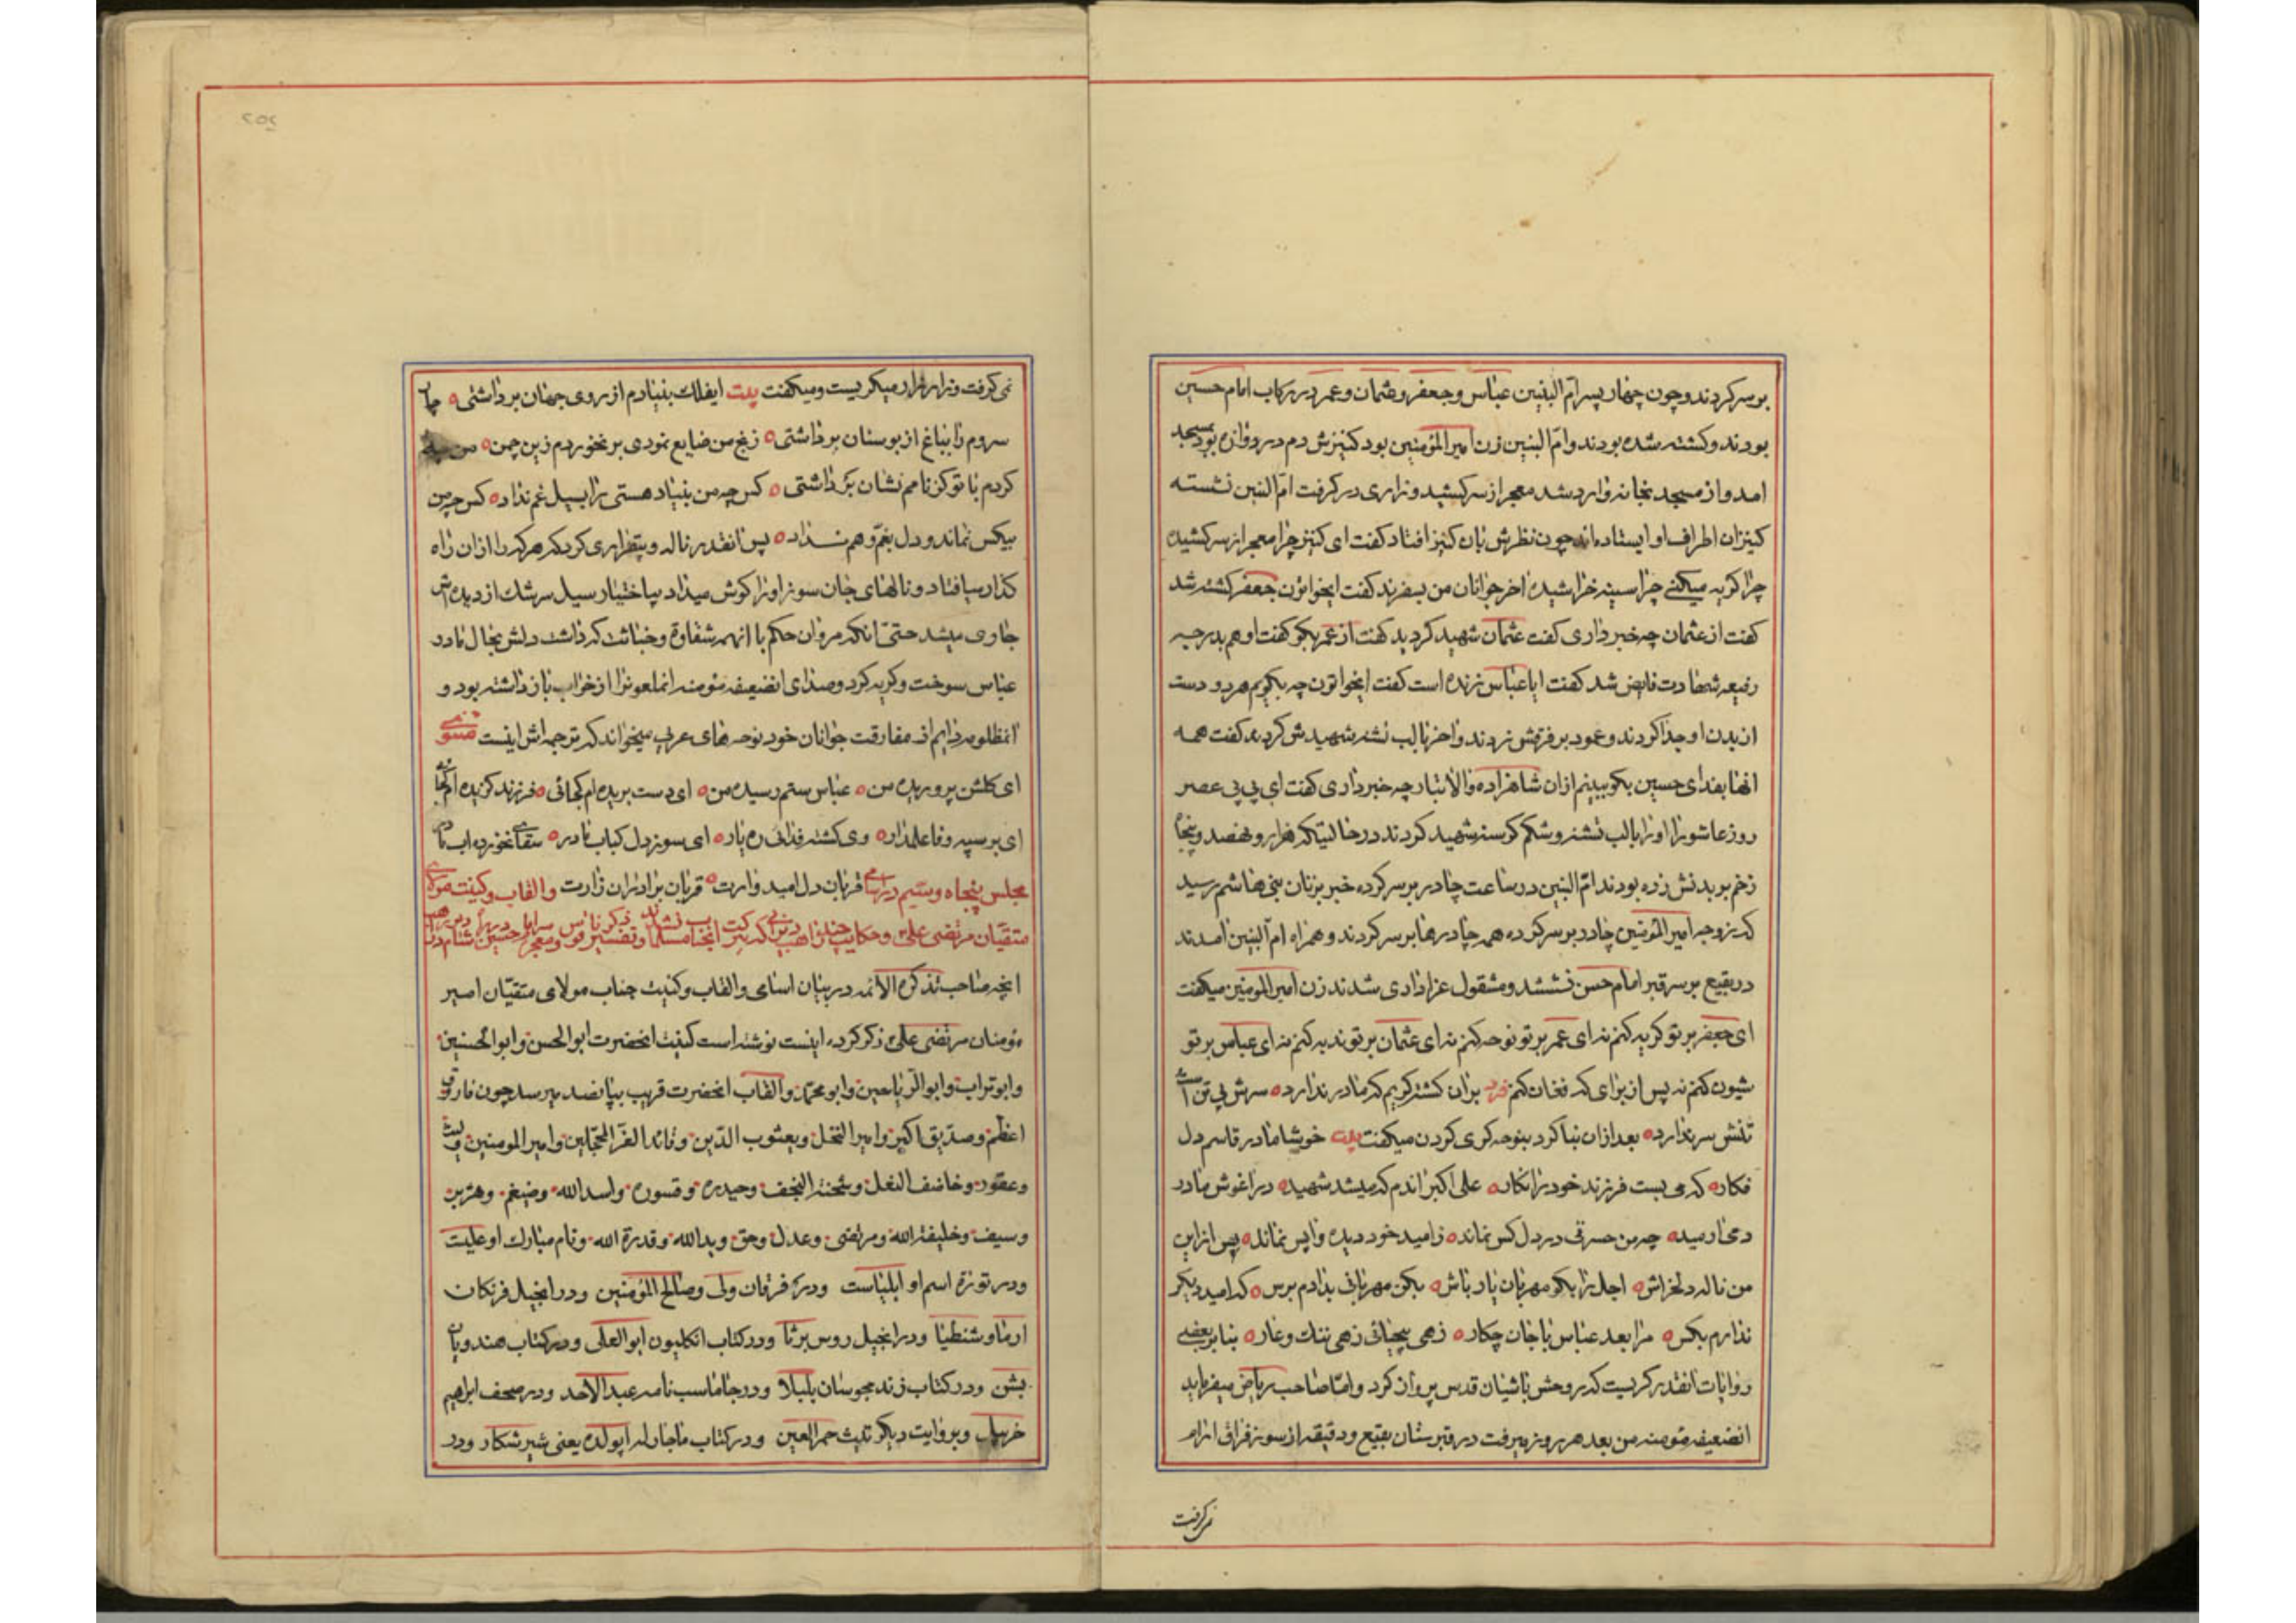 بر سر کردند و چون چهار پسر امّ البنین عباس و جعفر و عثمان و عمر در رکاب امام حسین
بودند و کشته شده بودند و امّ البنین زن امیرالمؤمنین بود کنیزش دم در دروازه بود بمسجد
امد و از مسجد بخانه وارد شد معجر از سر کشید و زاری در گرفت امّ البنین نشسته
کنیزان اطراف او ایستاده اند چون نظرش بان کنیز افتاد کفت ای کنیز چرا معجر از سر کشیده
چرا کریه میکنی چرا سینه خراشیده اخر جوانان من بسفرند کفت ایخواتون جعفر کشته شد
کفت از عثمان چه خبر داری کفت عثمان شهید کردید کفت از عمر بکو کفت او هم بدرجه
رفیعه شهادت فایض شد کفت ایا عباس زنده است کفت ایخواتون چه بکویم هر دو دست
از بدن او جدا کردند و عمود بر فرقش زدند و اخر با لب تشنه شهیدش کردند کفت همه
انها بفدای حسین بکو ببینم ازان شاهزاده والاتبار چه خبر داری کفت ای بی بی عصر
روز عاشورا اورا با لب تشنه و شکم کرسنه شهید کردند در حالتیکه هزار و نهصد و پنجاه
زخم بر بدنش زده بودند امّ البنین در ساعت چادر بر سر کرده خبر بزنان بنی هاشم رسید
که زوجه امیرالمؤمنین چادر بر سر کرده همه چادرها بر سر کردند و همراه امّ البنین امدند
در بقیع بر سر قبر امام حسن نشستند و مشقول عزاداری شدند زن امیرالمومنین میکفت
ای جعفر بر تو کریه کنم نه ای عمر بر تو نوحه کنم نه ای عثمان بر تو ندبه کنم نه ای عباس بر تو
شیون کنم نه پس از برای که فغان کنم فرد بران کشته کریم که مادر ندارد ه سرش بی تن است
تنش سر ندارد ه بعد ازان بنا کرد بنوحه کری کردن میکفت بیت خوشا مادر قاسم دل
فکار ه که می بست فرزند خود را نکار ه علی اکبر اندم که میشد شهید ه در اغوش مادر
دمی ارمید ه چه من حسرتی در دل کس نماند ه ز امید خود دیده واپس نماند ه پس از این
من ناله دلخراش ه اجل را بکو مهربان یار باش ه بکن مهربانی بدادم برس ه که امید دیکر
ندارم بکس ه مرا بعد عباس با جان چکار ه زهی بیحیائی زهی ننک و عار ه بنابر بعضی
روایات انقدر کریست که روحش باشیان قدس پرواز کرد و امّا صاحب ریاض میفرماید
انضعیفه مؤمنه من بعد هر روز میرفت در قبرستان بقیع و دقیقه از سوز فراق ارام
نمی کرفت
نمی کرفت و زار زار میکریست و میکفت بیت ایفلک بنیادم از روی جهان برداشتی ه
سروم را بباغ از بوستان برداشتی ه رنج من ضایع نمودی بر نخوردم زین چمن ه
کردم با تو کز نامم نشان برداشتی ه کس چه من بنیاد هستی را بسیل غم نداد ه کس چه من
بیکس نماند و دل بغم و هم نداد ه پس انقدر ناله و بیقراری کرد که هر که را ازان راه
کذار میافتاد و نالهای جان سوز اورا کوش میداد بیاختیار سیل سرشک از دیده اش
جاری میشد حتّی انکه مروان حکم با انهمه شقاوة و خباثت که داشت دلش بحال مادر
عباس سوخت و کریه کرد و صدای انضعیفه مؤمنه انملعونرا از خواب باز داشته بود و
انمظلومه دایم از مفارقت جوانان خود نوحه های عربی میخواند که ترجمه اش اینست مثنوی
ای کلشن پروریده من ه عباس ستم رسیده من ه ای دست بریده ام کجائی ه فرزند کزیده ام کجائی
ای بر سپه وفا علمدار ه وی کشته فدائی ره یار ه ای سوز دل کباب مادر ه سقای نخورده اب مادر
قربان دل امید وارت ه قربان برادران زارت
مجلس پنجاه و سیّم در اسامی والقاب و کنیت مولای
متقیان مرتضی علی و حکایت
انچه صاحب تذکرة الائمه در بیان اسامی والقاب و کنیت جناب مولای متقیان امیر
مؤمنان مرتضی علی ذکر کرده اینست نوشته است کنیت انحضرت ابوالحسن و ابوالحسنین
و ابوتراب و ابوالریاحین و ابو محمّد والقاب انحضرت قریب بپانصد میرسد چون فاروق
اعظم و صدّیق اکبر و امیر النحل و یعسوب الدّین و قائد الغرّ المحجّلین و امیرالمومنین و لیث
و عقود و خاصف النعل و شحنة النجف و حیدره و قسوره و اسدالله و ضیغم و هزبر
و سیف و خلیفة الله و مرتضی و عدل و حق و یدالله و قدرة الله و نام مبارک او علیست
و در توراة اسم او ایلیاست و در فرقان ولی و صالح المؤمنین و در انجیل فرنکان
ارماوشنطیا و در انجیل روس برثا و در کتاب انکلیون ابوالعلی و در کتاب هندویان
بشن و در کتاب زند مجوسان بلیلا و در جاماسب نامه عبدالاحد و در صحف ابراهیم
خربیل و بروایت دیکر تلیث حمر العین و در کتاب ماجار له اپولده یعنی شیر شکار و در